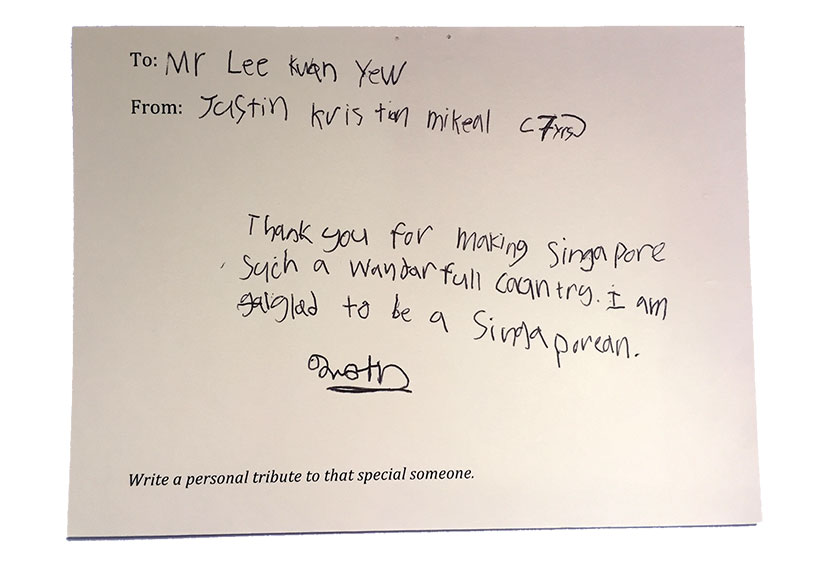 To: Mr Lee kuan Yew
From: Justin kristian mikeal (7yrs)
Thank you for making Singapore
such a wandarfull country. i am
glad to be a Singaporean.
Write a personal tribute to that special someone.